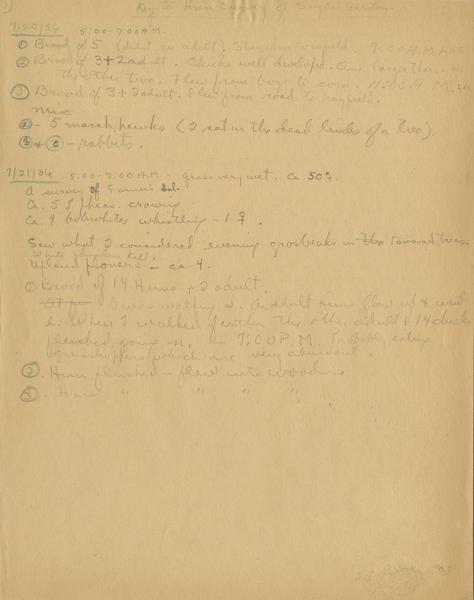 1)
Key to Hun Survey of
7/20/36 5:00-7:00 P.M.
① Brood of 5 (didn't see adult). Stayed in cornfield. 9:00 A.M.
② Brood of 3 + 2 adult. Chicks well developed. One larger than
the other two. Flew from
③ Brood of 3 + 2 adult. Flew from road to hayfield.
Misc
ⓐ - 5 marsh hawks (2 sat in the dead limbs of a tree).
ⓑ + ⓒ - rabbits.
7/21/36 5:00-7:00 A.M. - Grass very wet. Ca. 50°.
A survey of Farmer's
Ca. 5 ♂ pheas. crowing.
Ca. 4 bobwhites whistling - 1 ♀.
Saw what I considered evening grosbeaks in the tamarack trees.
Upland plovers - ca 4.
① Brood of 14 Huns + 2 adult.
I was walking w. An adult Hun flew up & went
When I walked further the other adult + 14 chicks
flushed, going n. 7:00 P.M. Probably eating
grasshoppers which are very abundant.
② Hun flushed - flew into woods.
③ Hun " " " "